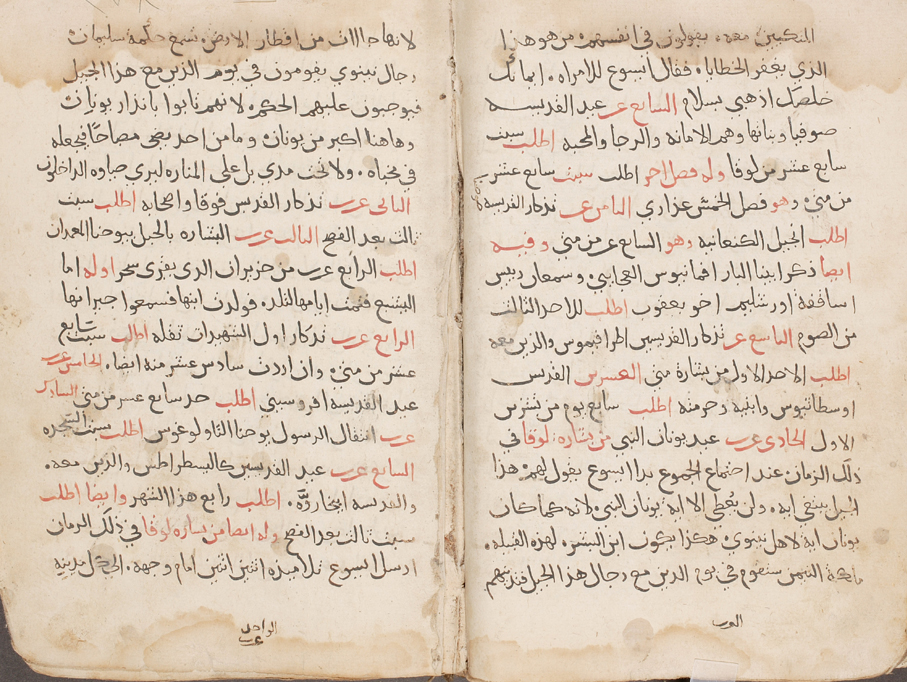 المتكيين معه يقولون في انفسهم من هو هذا
الذي يغفر الخطايا فقال ايسوع للامراه ايمانك
خلصك اذهبي بسلام السابع عر عيد القديسه
صوفيا وبناتها وهم الامانه والرجا والمحبه اطلب سبت
سابع عشر من لوقا وله فصل اخر اطلب سبت سابع عشر
من متى وهو فصل الخمس عذاري الثامن عر تذكار القديسه
اطلب انجيل الكنعانيه وهو السابع عر من متى وفيه
ايضا ذكر ابينا البار افمانيوس العجايبي وسمعان ريس
اساقفة اورشليم اخو يعقوب اطلب للاحد الثالث
من الصوم التاسع عر تذكار القديسين اطرافيموس والذين معه
اطلب الاحد الاول من بشارة متى العشرين القديس
اوسطاثيوس وابليه وحرمته اطلب سابع يوم من تشرين
الاول الحادي عرب عيد يونان النبي من بشاره لوقا في
ذلك الزمان عند اجتماع الجموع بدا ايسوع يقول لهم هذا
الجيل يبتغي ايه ولن يعطي الا ايه يونان النبي لانه كما كان
يونان ايه لاهل نينوي هكذا يكون ابن البشر لهذه القبيله
ملكة التيمن ستقوم في يوم الدين مع رجال هذا الجيل فتدينهم
لانها جاات من اقطار الارض تسمع حكمة سليمان
رجال نينوي يقومون في يوم الدين مع هذا الجيل
فيوجبون عليهم الحكم لانهم تابوا بانذار يونان
وهاهنا اكبر من يونان وما من احد يضي مصباحا فيجعله
في مخباه ولا تحت مدي بل على المناره ليري ضياوه الداخلون
الثاني عرب تذكار القديس فوقا واصحابه اطلب سبت
ثالث بعد الفصح الثالث عرب البشاره بالحبل بيوحنا المعمدان
اطلب الرابع عرب من حزيران الذي يقرى سحر اوله اما
اليشبع فتمت ايامها لتلد فولدت ابنها فسمعوا جيرانها
الرابع عرب تذكار اول الشهيدات تقله اطلب سبت سابع
عشر من متى وان اردت سادس عشر منه ايضا الخامس عرب
عيد القديسه افروسيني اطلب حد سابع عشر من متى السادس
عرب انتقال الرسول يوحنا الثاولوغوس اطلب سبت السجده
السابع عرب عيد القديسين كاليسطراطس والذين معه
والقديسه ابيخاروه اطلب رابع هذا الشهر وايضا اطلب
سبت ثالث بعد الفصح وله ايضا من بشاره لوقا في ذلك الزمان
ارسل ايسوع تلاميذه اثنين اثنين امام وجهه الى كل مدينه
الواحد
عرب